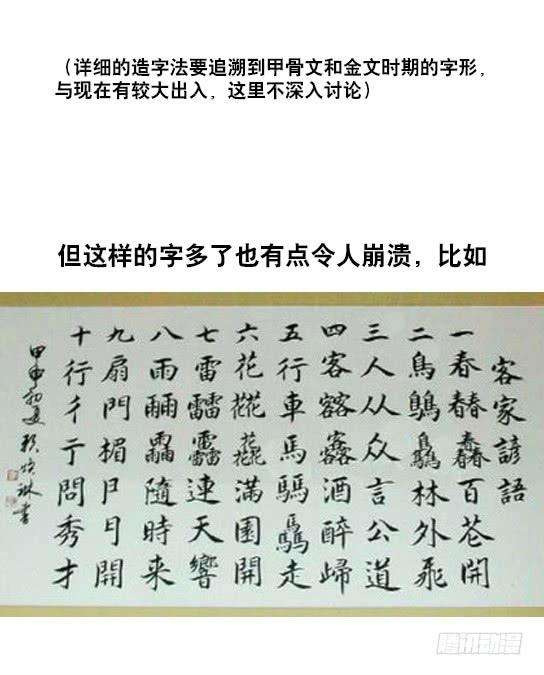 （详细的造字法要追溯到甲骨文和金文时期的字形，
与现在有较大出入，这里不深入讨论）
但这样的字多了也有点令人崩溃，比如
客家諺語
一春百花開
二鳥林外飛
三人从众言公道
四客酒醉歸
五行車馬驫走
六花滿園開
七雷連天響
八雨隨時来
九扇門開
十行彳亍問秀才
甲申初夏書
腾讯动漫